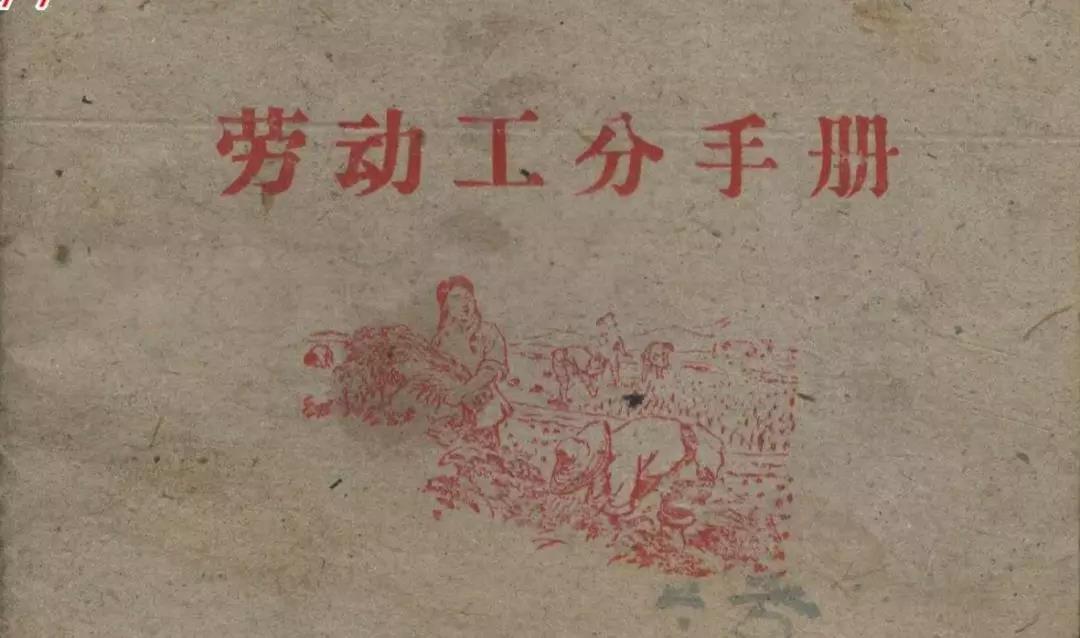 劳动工分手册